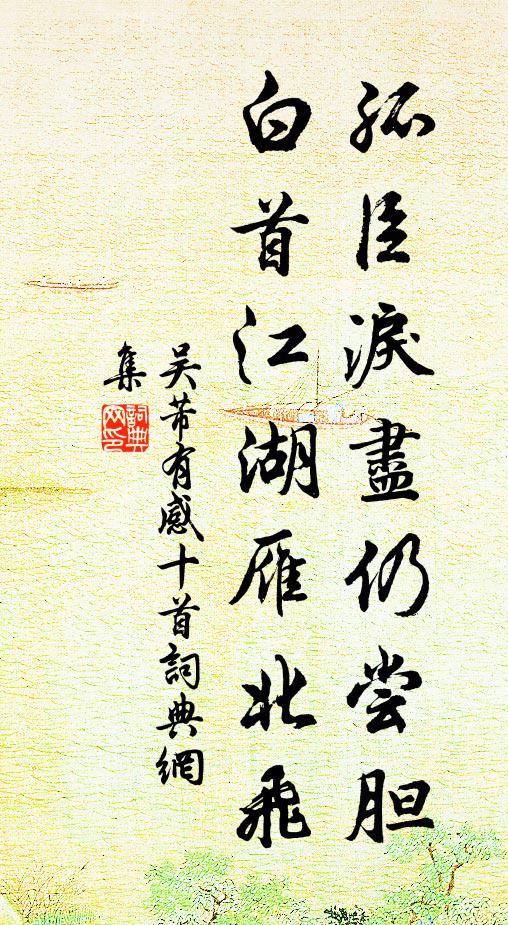 孤臣淚盡仍尝胆
白首江湖雁北飛
吴芾有感十首詞典網
集
詞典
网印